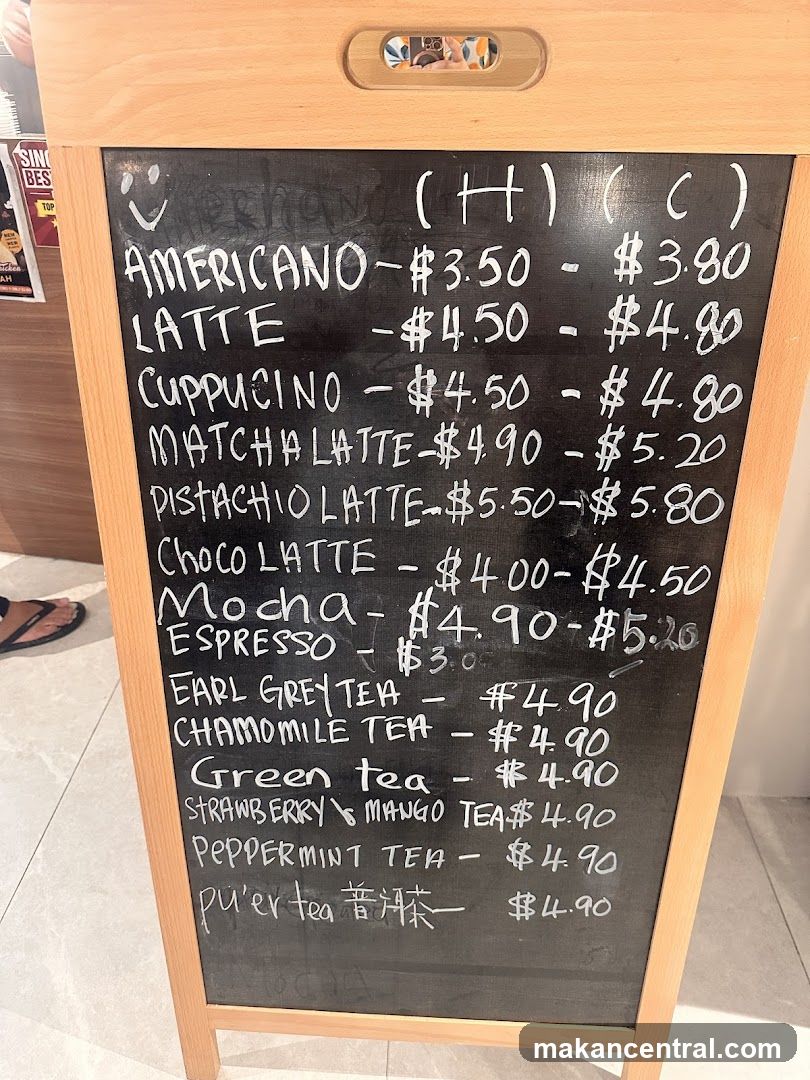 (H) (C)
AMERICANO - $3.50 - $3.80
LATTE - $4.50 - $4.80
CUPPUCINO - $4.50 - $4.80
MATCHA LATTE - $4.90 - $5.20
PISTACHIO LATTE - $5.50 - $5.80
CHOCO LATTE - $4.00 - $4.50
Mocha - $4.90 - $5.20
ESPRESSO - $3.0
EARL GREY TEA - $4.90
CHAMOMILE TEA - $4.90
Green tea - $4.90
STRAWBERRY & MANGO TEA $4.90
PEPPERMINT TEA - $4.90
pu'er tea 普洱茶 - $4.90
SIN
BES
TOP
makancentral.com